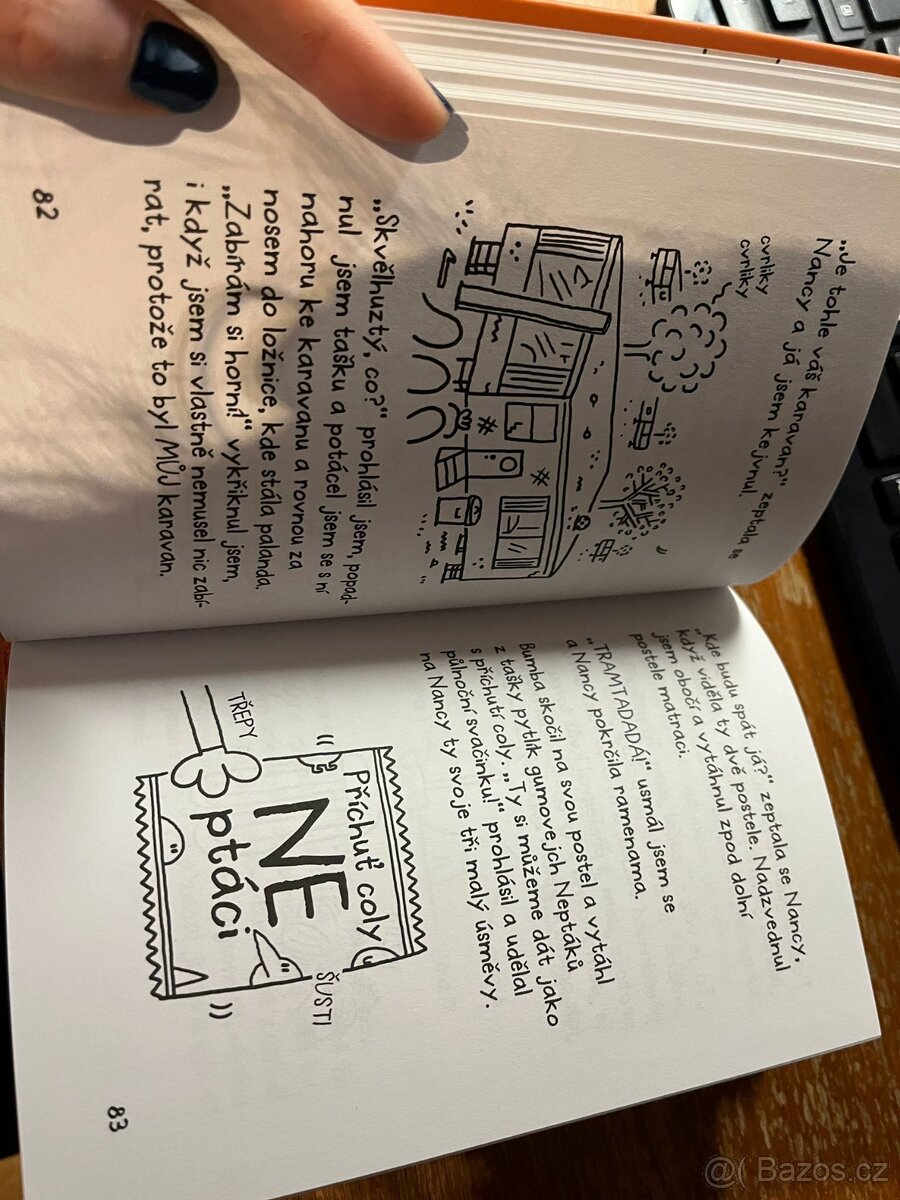 „Je tohle váš karavan?“ zeptala se
Nancy a já jsem kejvnul.
cvrliky
cvrliky
„Skvělhuztý, co?“ prohlásil jsem, popad-
nul jsem tašku a potácel jsem se s ní
nahoru ke karavanu a rovnou za
nosem do ložnice, kde stála palanda.
„Zabírám si horní!“ vykřiknul jsem,
i když jsem si vlastně nemusel nic zabí-
rat, protože to byl MŮJ karavan.
82
„Kde budu spát já?“ zeptala se Nancy,
když viděla ty dvě postele. Nadzvednul
jsem obočí a vytáhnul zpod dolní
postele matraci.
„TRAMTADADÁ!“ usmál jsem se
a Nancy pokrčila ramenama.
Bumba skočil na svou postel a vytáhl
z tašky pytlík gumovejch Neptáků
s příchutí coly. „Ty si můžeme dát jako
půlnoční svačinku!“ prohlásil a udělal
na Nancy ty svoje tři malý úsměvy.
TŘEPY
Příchuť coly
NE
ptáci
ŠUSTI
83
@( Bazos.cz